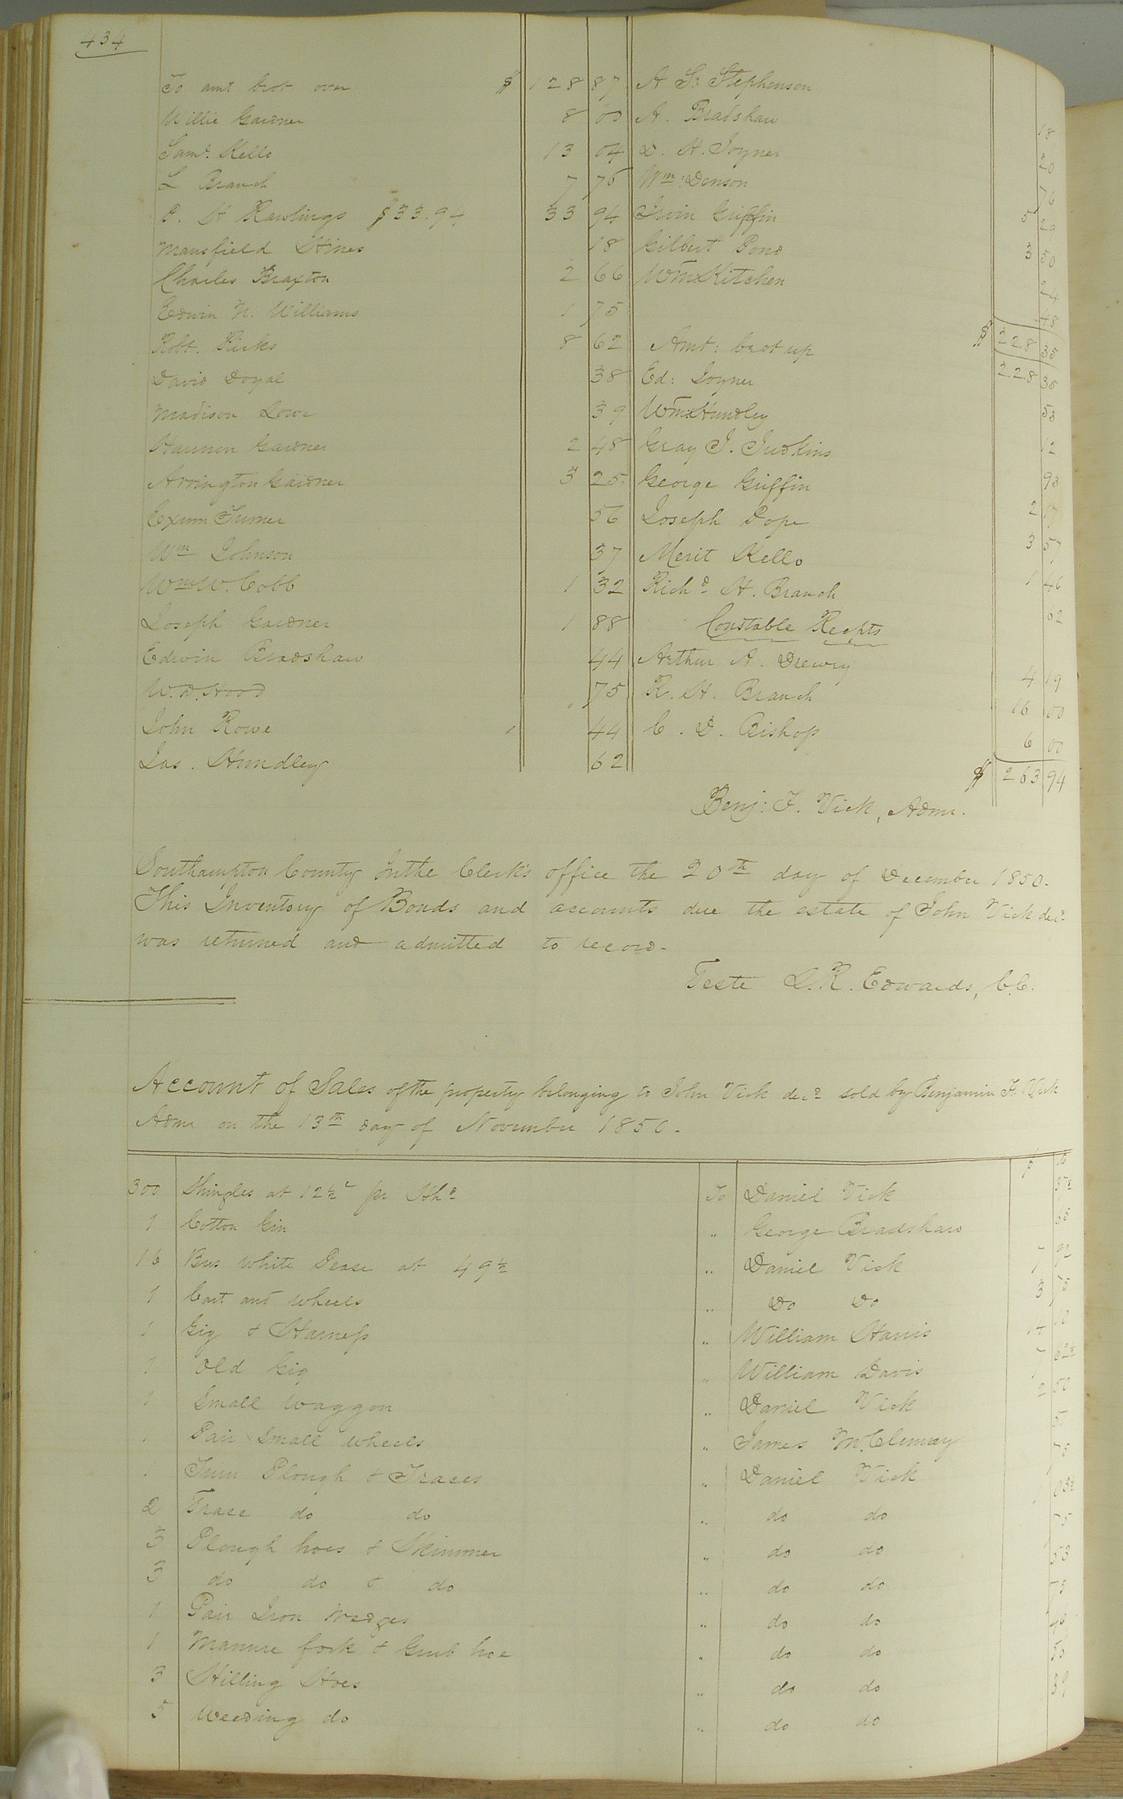 434
To amt brot over $ 128 87
Willie Gardner 8 00
Saml. Kello 13 04
L Branch 7 75
P. H Rawlings $33.94 33 94
Mansfield Hines 18
Charles Braxton 2 66
Edwin N. Williams 1 75
Robt. Ricks 8 62
David Doyal 38
Madison Lowe 39
Hannon Gardner 2 48
Arrington Gardner 3 25
Exum Turner 56
Wm Johnson 37
Wm W. Cobb 1 32
Joseph Gardner 1 88
Edwin Bradshaw 44
W. D. Hood 75
John Rowe 44
Jas. Hundley 62
A S: Stephenson
A. Bradshaw 18
D. H. Joyner 20
Wm: Denson 16
Irvin Griffin 5
Gilbert Pond 3 50
Wm Kitchen 24
48
$ 228 35
Amt: brot up 228 35
Ed: Joyner 53
Wm Hundley 12
Gray J. Judkins 93
George Griffin 2
Joseph Pope 3 57
Merit Kello 1 46
Richd H. Branch 62
Constable Recpts
Arthur A. Drewry 4 19
R. H. Branch 16 00
C. D. Bishop 6 00
$ 263 94
Benj: F. Vick, Admr.
Southampton County In the Clerk's office the 20th day of December 1850.
This Inventory of Bonds and accounts due the estate of John Vick decd
was returned and admitted to record.
Teste L. R. Edwards, C.C.
Account of Sales of the property belonging to John Vick decd sold by Benjamin F. Vick
Admr on the 13th day of November 1850.
300 Shingles at 12½c per Hhd To Daniel Vick 37½
1 Cotton Gin " George Bradshaw
16 Bus white Pease at 49½ " Daniel Vick 7 92
1 Cart and wheels " Do Do 3 75
1 Gig & Harness " William Harris
1 Old Gig " William Davis
1 Small Waggon " Daniel Vick 2 50
1 Pair Small wheels " James McClenny
1 Turn Plough & Traces " Daniel Vick 75
2 Trace do do " do do
3 Plough hoes & Skimmer " do do
3 do do & do " do do
1 Pair Iron Wedges " do do
1 Manure fork & Grub hoe " do do
3 Hilling Hoes " do do
5 Weeding do " do do